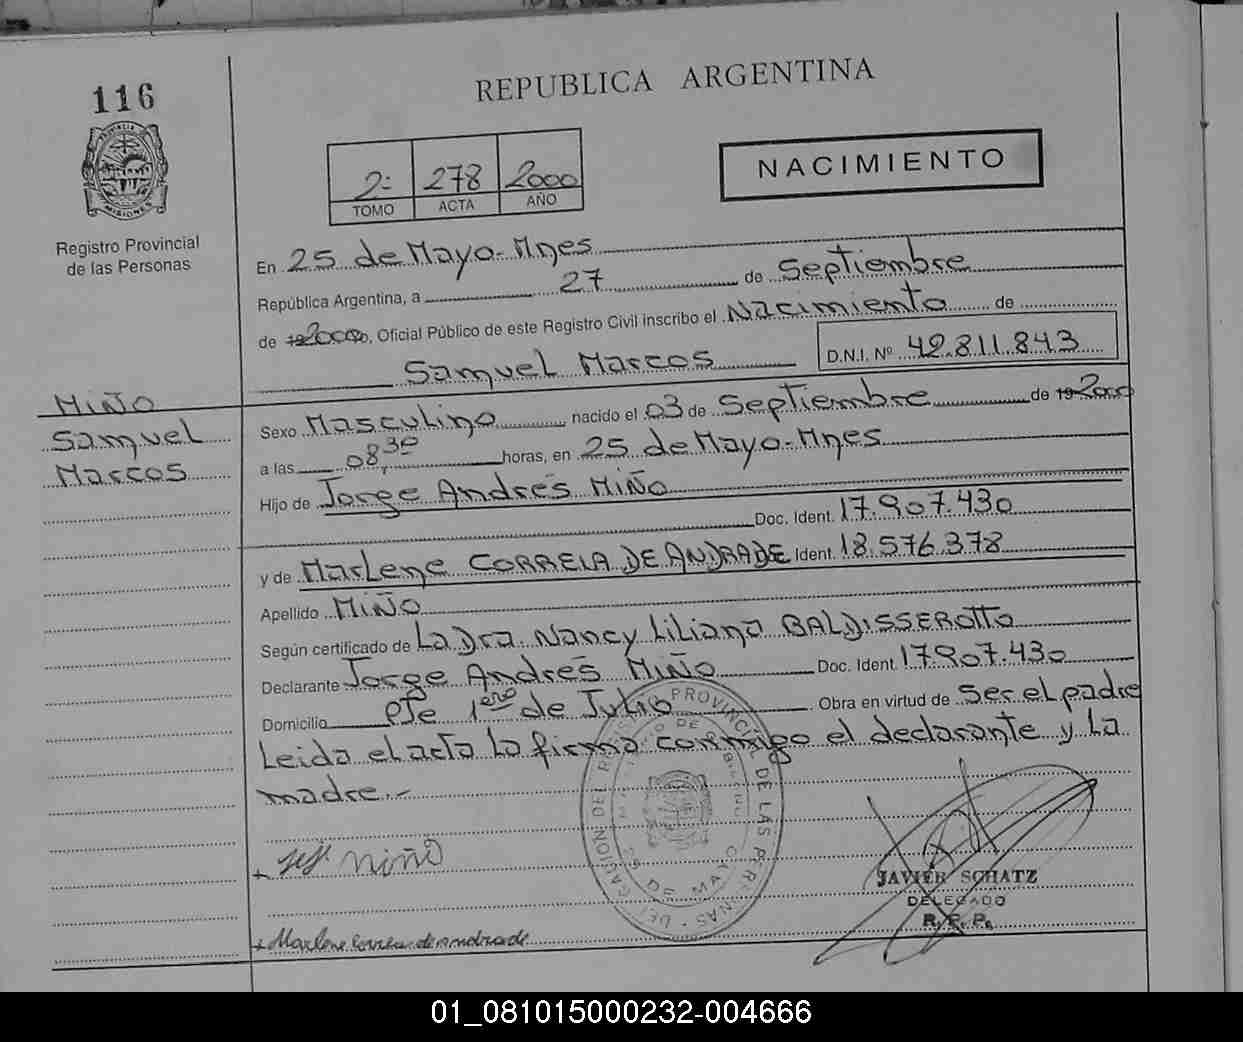 116
REPUBLICA ARGENTINA
2: 278 2000
TOMO ACTA AÑO
NACIMIENTO
PROVINCIA DE MISIONES
Registro Provincial
de las Personas
En 25 de Mayo-Mnes
República Argentina, a 27 de Septiembre
de 192000, Oficial Público de este Registro Civil inscribo el Nacimiento de
Samuel Marcos D.N.I. Nº 42.811.843
MIÑO
Samuel
Marcos
Sexo Masculino nacido el 03 de Septiembre de 192000
a las 08,30 horas, en 25 de Mayo-Mnes
Hijo de Jorge Andrés MIÑO
Doc. Ident. 17.907.430
y de Marlene CORREIA DE ANDRADE Ident. 18.576.378
Apellido MIÑO
Según certificado de La Dra. Nancy Liliana BALDISSEROTTO
Declarante Jorge Andrés MIÑO Doc. Ident. 17.907.430
Domicilio Pje 1ero de Julio Obra en virtud de ser el padre
Leida el acta la firma conmigo el declarante y la
madre.-
+ Miño
JAVIER SCHATZ
DELEGADO
R. P. P.
+ Marlene Correia de andrade
DELEGACION DEL REGISTRO PROVINCIAL DE LAS PERSONAS
25 DE MAYO
01_081015000232-004666